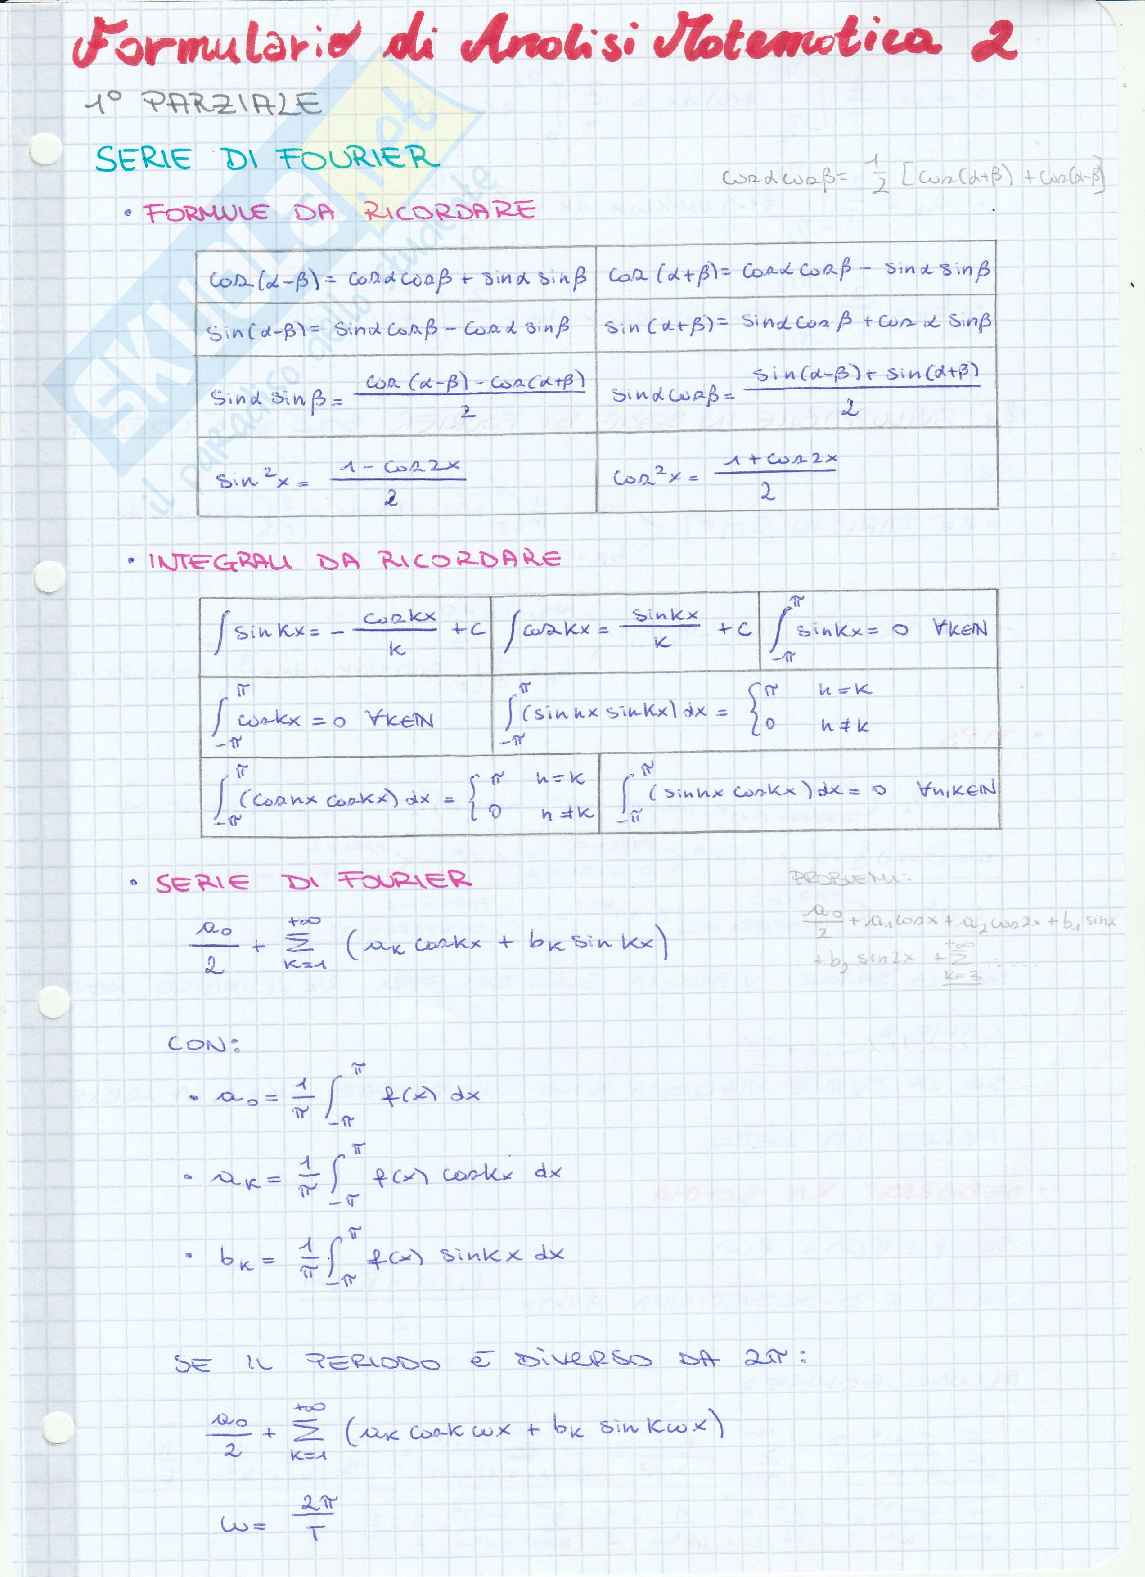 Formulario di Analisi Matematica 2
1° PARZIALE
SERIE DI FOURIER
cosα cosβ = 1/2 [cos(α+β) + cos(α-β)]
• FORMULE DA RICORDARE
cos(α-β) = cosα cosβ + sinα sinβ
cos(α+β) = cosα cosβ - sinα sinβ
sin(α-β) = sinα cosβ - cosα sinβ
sin(α+β) = sinα cosβ + cosα sinβ
sinα sinβ = (cos(α-β) - cos(α+β))/2
sinα cosβ = (sin(α-β) + sin(α+β))/2
sin²x = (1 - cos2x)/2
cos²x = (1 + cos2x)/2
• INTEGRALI DA RICORDARE
∫ sinkx = - coskx/k + C
∫ coskx = sinkx/k + C
∫_{-π}^{π} sinkx = 0 ∀k∈ℕ
∫_{-π}^{π} coskx = 0 ∀k∈ℕ
∫_{-π}^{π} (sinnx sinkx) dx = { π n=k
0 n≠k
∫_{-π}^{π} (cosnx coskx) dx = { π n=k
0 n≠k
∫_{-π}^{π} (sinnx coskx) dx = 0 ∀n,k∈ℕ
• SERIE DI FOURIER
a₀/2 + Σ_{k=1}^{+∞} (a_k coskx + b_k sinkx)
PROBLEMI:
a₀/2 + a₁cosx + a₂cos2x + b₁ sinx
+ b₂ sin2x + Σ_{k=3}^{+∞} ....
CON:
• a₀ = 1/π ∫_{-π}^{π} f(x) dx
• a_k = 1/π ∫_{-π}^{π} f(x) coskx dx
• b_k = 1/π ∫_{-π}^{π} f(x) sinkx dx
SE IL PERIODO È DIVERSO DA 2π:
a₀/2 + Σ_{k=1}^{+∞} (a_k coskωx + b_k sinkωx)
ω = 2π/T
SKUOLA.net
il paradiso dello studente